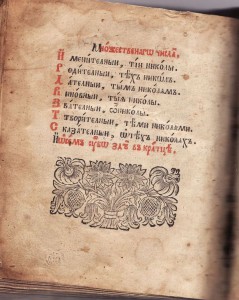 Множественнагѡ числа̀.
Именителныи, тїи николы.
Родителныи, тѣхъ никѡлъ.
Дателныи, тымъ николамъ.
Виновныи, тыѧ николы.
Звателныи, ѡ николы.
Творителныи, тѣми николами.
Сказателныи, ѡ тѣхъ николахъ.
въ кратцѣ.